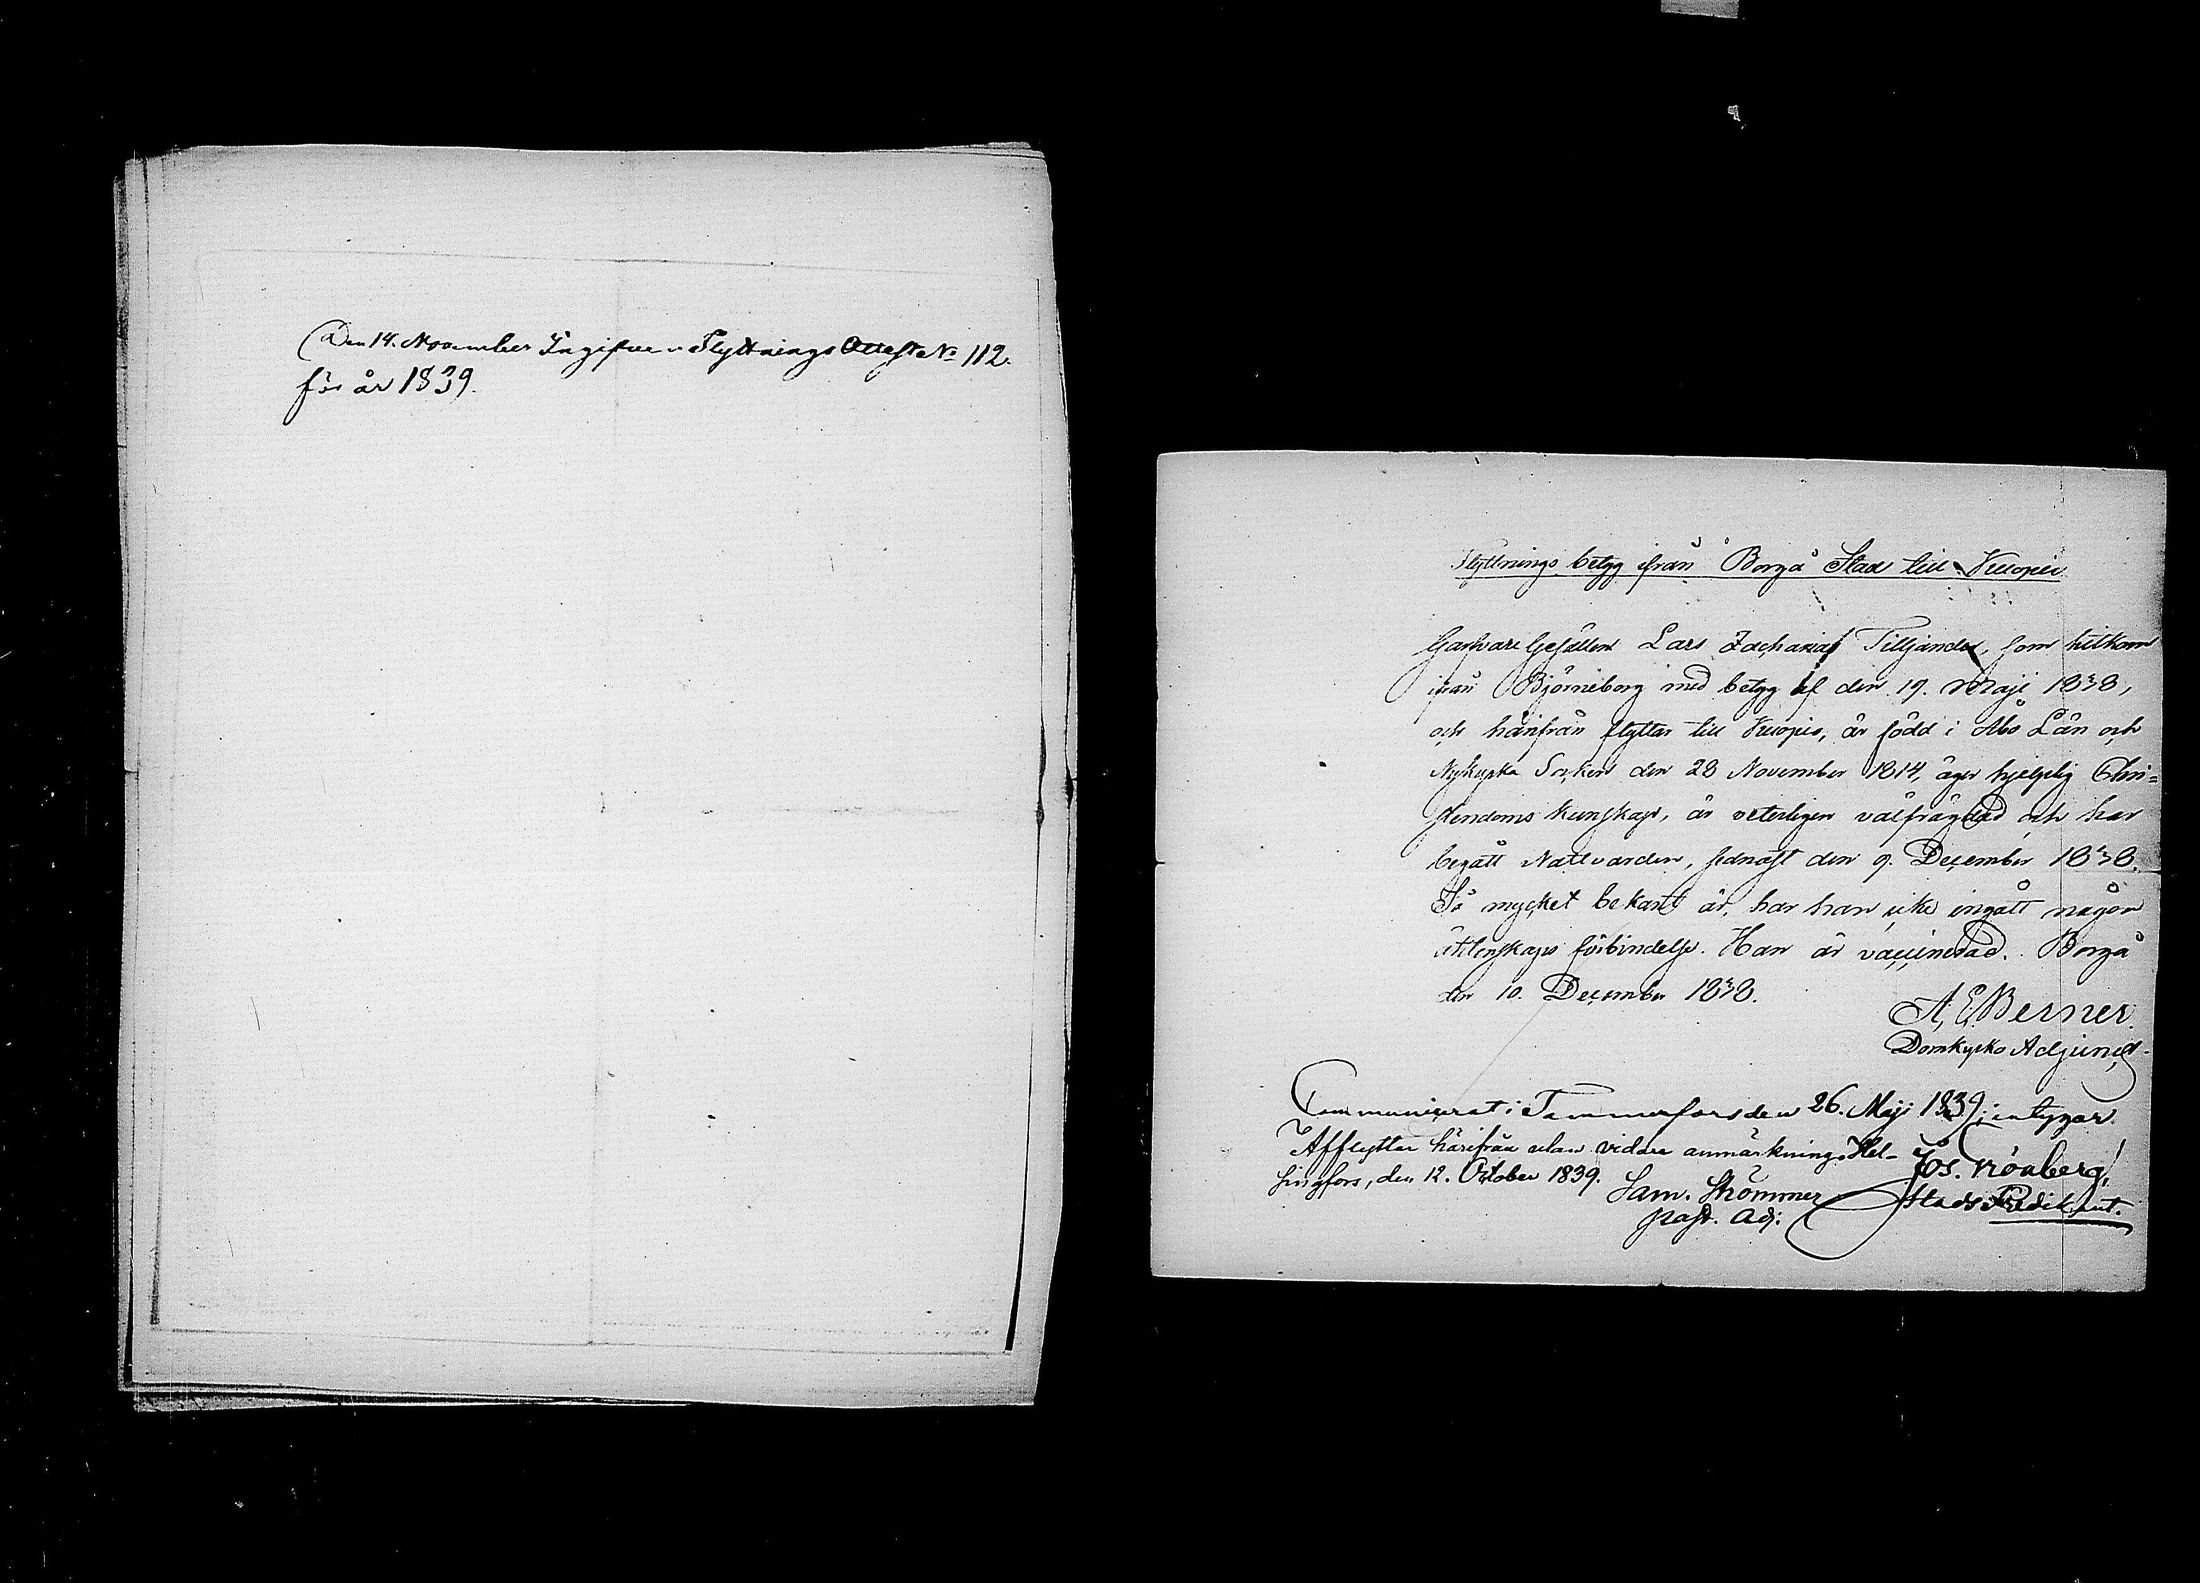 Den 14. November Ingifven Flyttnings Attest No 112.
för år 1839.
Flyttnings betyg ifrån Borgå Stad till Kuopio
Garfvare Gesällen Lars Zacharias Tilljander, som hitkom
ifrån Björneborg med betyg af den 19. Maji 1838,
och härifrån flyttar till Kuopio, är född i Åbo Län och
Nykyrka Socken den 28 November 1814, äger hjelplig Chri=
stendoms kunskap, är veterligen välfrägdad och har
begått Nattvarden, sednast den 9. December 1838.
Så mycket bekant är, har han icke ingått någon
äktenskaps förbindelse. Han är vaccinerad. Borgå
den 10. December 1838.
A. E. Berner.
Domkyrko Adjunct.
Communicerat i Tammerfors den 26. Maji 1839; intygar.
Jos. Grönberg,
Stads Predikant.
Afflyttar härifrån utan vidare anmärkning. Hel-
singfors, den 12. October 1839.
Sam. Strömmer
Past. Adj: